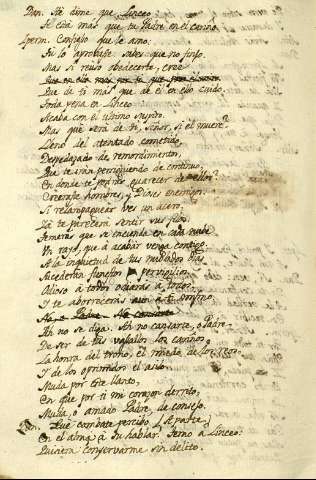 Dan. Me dime que Linceo
Se está mas que tu Padre en el cariño.
Hiperm. Confieso que le amo.
Tu lo aprobaste sabes que no finjo.
Mas si reuso obedecerte, cree
Que de ti mas que de él en ello cuido.
Toda pena en Linceo
Acaba con el ultimo suspiro.
Mas qué será de ti, Señor, si él muere?
Lleno del atentado cometido,
Despedazado de remordimientos,
Que te irán persiguiendo de continuo,
En donde te podrás guarecer de ellos?
Creerás hombres, y Dioses enemigos.
Si relampaguear ves un acero,
Ya te parecerá sentir sus filos.
Temerás que se encienda en cada nube
Un rayo, que á acabar venga contigo.
A la inquietud de tus nublados dias
Sucederán funestos pervigilios.
Odioso á todos odiarás á todos.
Y te aborrecerás aun á ti mismo.
Ah no se diga. Ah no cansarte, o Padre
De ser de tus vasallos los cariños,
La honra del trono, el miedo de los
Y de los oprimidos el asilo.
Muda por este llanto,
En que por ti mi corazon derrito,
Muda, o amado Padre, de consejo.
Dan. Qué combate percibo (Aparte)
En el alma á su hablar. Temo á Linceo.
Quisiera conservarme sin delito.